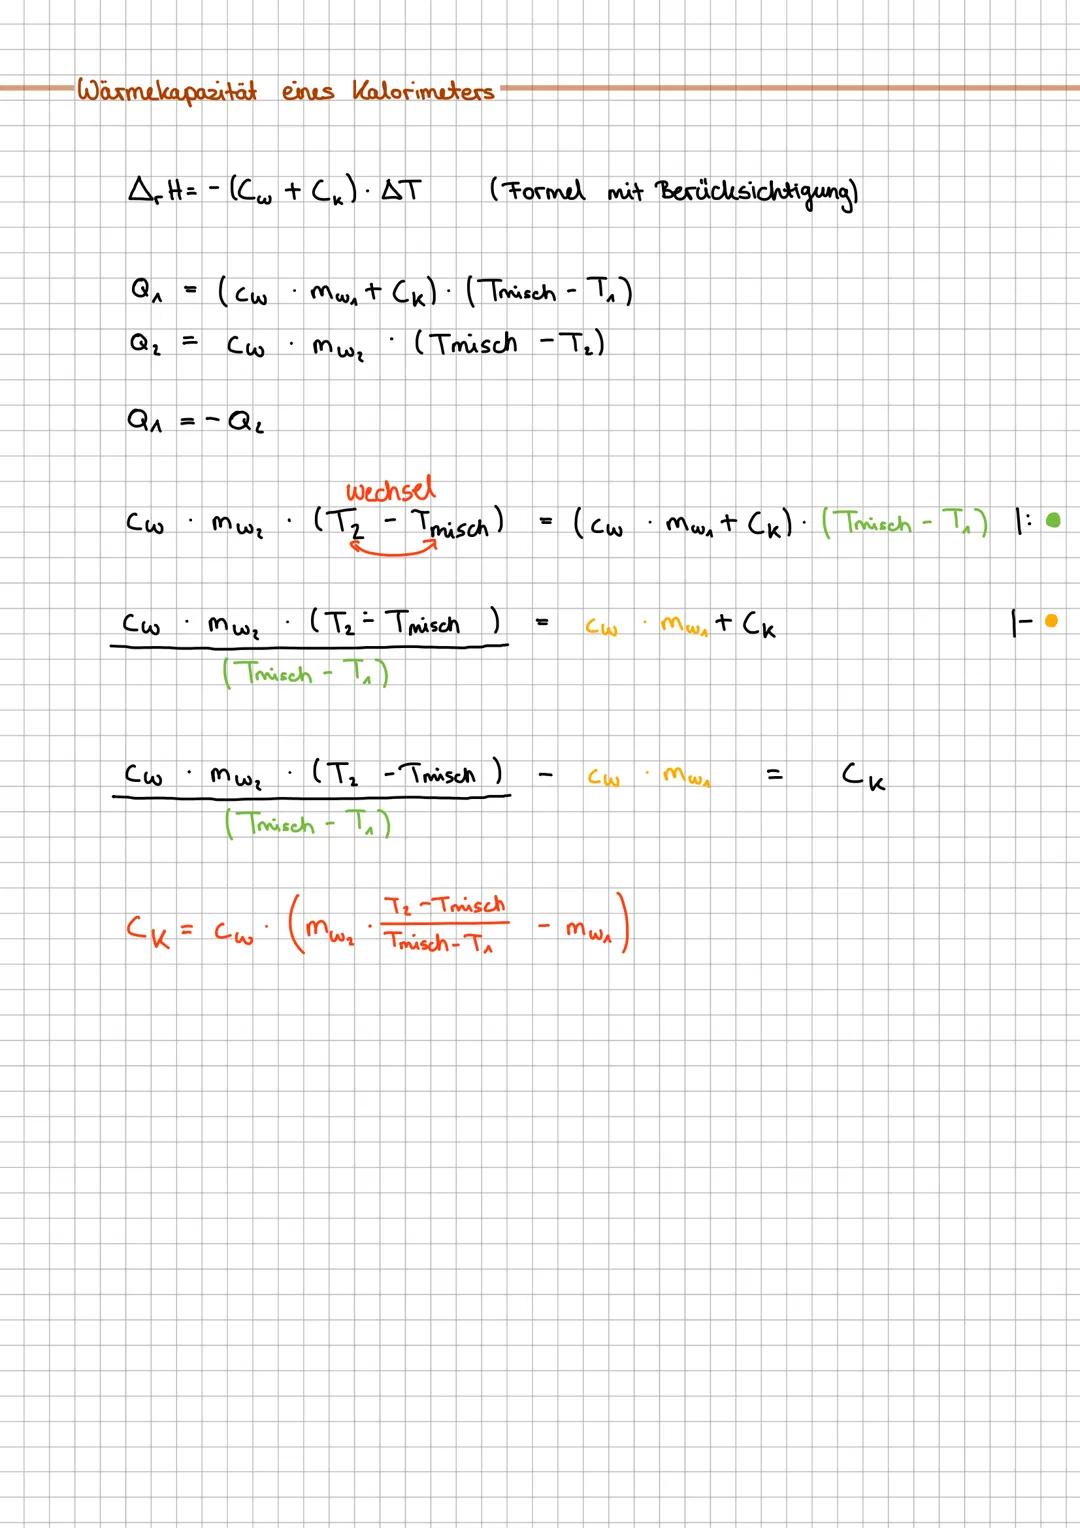 Wärmekapazität eines Kalorimeters
ΔᵣH = - (C_w + C_K) · ΔT (Formel mit Berücksichtigung)
Q₁ = (c_w · m_w₁ + C_K) · (T_misch - T₁)
Q₂ = c_w · m_w₂ · (T_misch - T₂)
Q₁ = - Q₂
wechsel
c_w · m_w₂ · (T₂ - T_misch) = (c_w · m_w₁ + C_K) · (T_misch - T₁) |: ●
c_w · m_w₂ · (T₂ - T_misch) = c_w · m_w₁ + C_K |- ●
(T_misch - T₁)
c_w · m_w₂ · (T₂ - T_misch) - c_w · m_w₁ = C_K
(T_misch - T₁)
T₂ - T_misch
C_K = c_w · (m_w₂ · - m_w₁)
T_misch - T₁